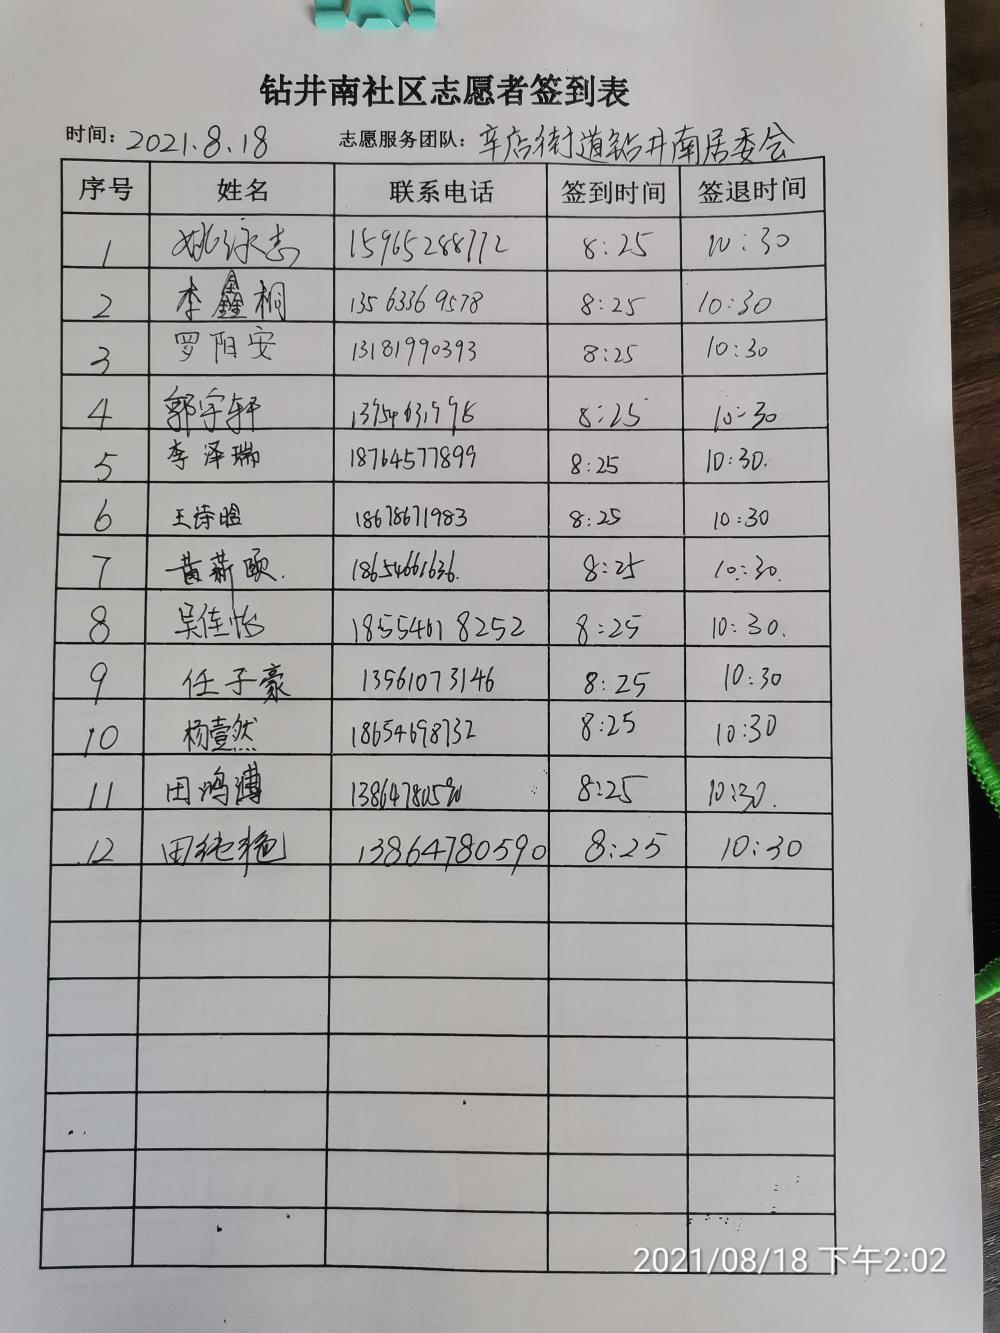 钻井南社区志愿者签到表
时间：2021.8.18 志愿服务团队：辛店街道钻井南居委会
序号 姓名 联系电话 签到时间 签退时间
1 姚泳志 15965288772 8:25 10:30
2 李鑫桐 13563369578 8:25 10:30
3 罗阳安 13181990393 8:25 10:30
4 郭宇轩 8:25 10:30
5 李泽瑞 18764577899 8:25 10:30.
6 王诗 18678671983 8:25 10:30
7 黄薪颐. 18654661636. 8:25 10:30.
8 吴佳怡 18554618252 8:25 10:30.
9 任子豪 13561073146 8:25 10:30
10 杨壹然 18654698732 8:25 10:30
11 田鸿溥 13864780590 8:25 10:30.
12 田艳 13864780590 8:25 10:30
2021/08/18 下午2:02